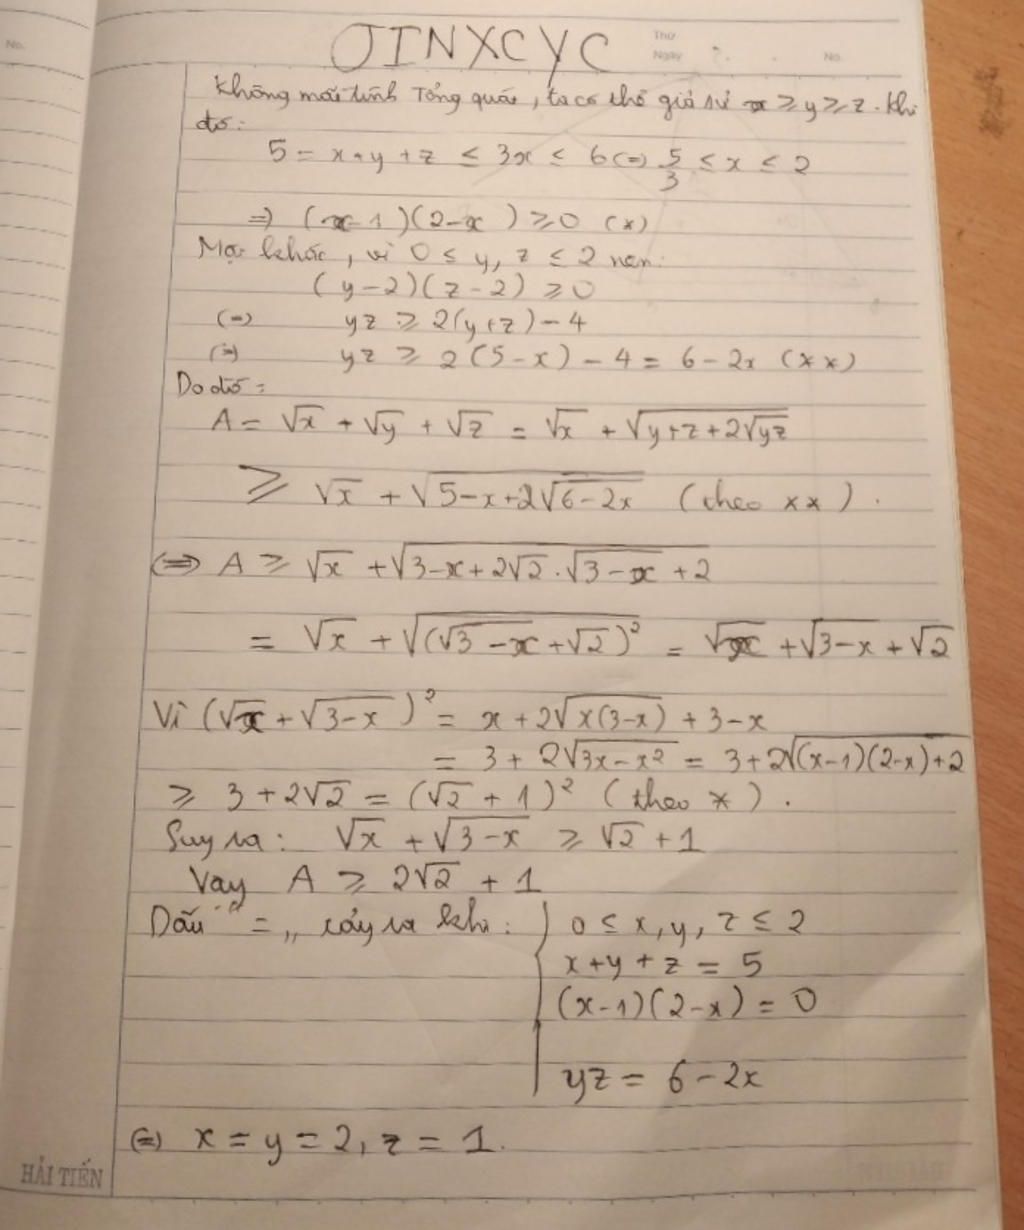 No.
JINXCYC
Thứ
Ngày
No.
Không mất tính Tổng quát, ta có thể giả sử x ≥ y ≥ z. Khi
đó:
5 = x + y + z ≤ 3x ≤ 6 (=) 5/3 ≤ x ≤ 2
=) (x-1)(2-x) ≥ 0 (*)
Mặt khác, vì 0 ≤ y, z ≤ 2 nên:
(y-2)(z-2) ≥ 0
(=) yz ≥ 2(y+z) - 4
(=) yz ≥ 2(5-x) - 4 = 6 - 2x (**)
Do đó:
A = √x + √y + √z = √x + √(y+z+2√yz)
≥ √x + √(5-x+2√(6-2x)) (theo **).
(=) A ≥ √x + √(3-x+2√2.√(3-x)+2)
= √x + √((√(3-x)+√2)²) = √x + √(3-x) + √2
Vì (√x + √(3-x))² = x + 2√(x(3-x)) + 3-x
= 3 + 2√(3x-x²) = 3 + 2√((x-1)(2-x)+2)
≥ 3 + 2√2 = (√2 + 1)² (theo *).
Suy ra: √x + √(3-x) ≥ √2 + 1
Vay A ≥ 2√2 + 1
Dấu "=" xảy ra khi: { 0 ≤ x, y, z ≤ 2
x + y + z = 5
(x-1)(2-x) = 0
yz = 6 - 2x
(=) x = y = 2, z = 1.
HẢI TIẾN